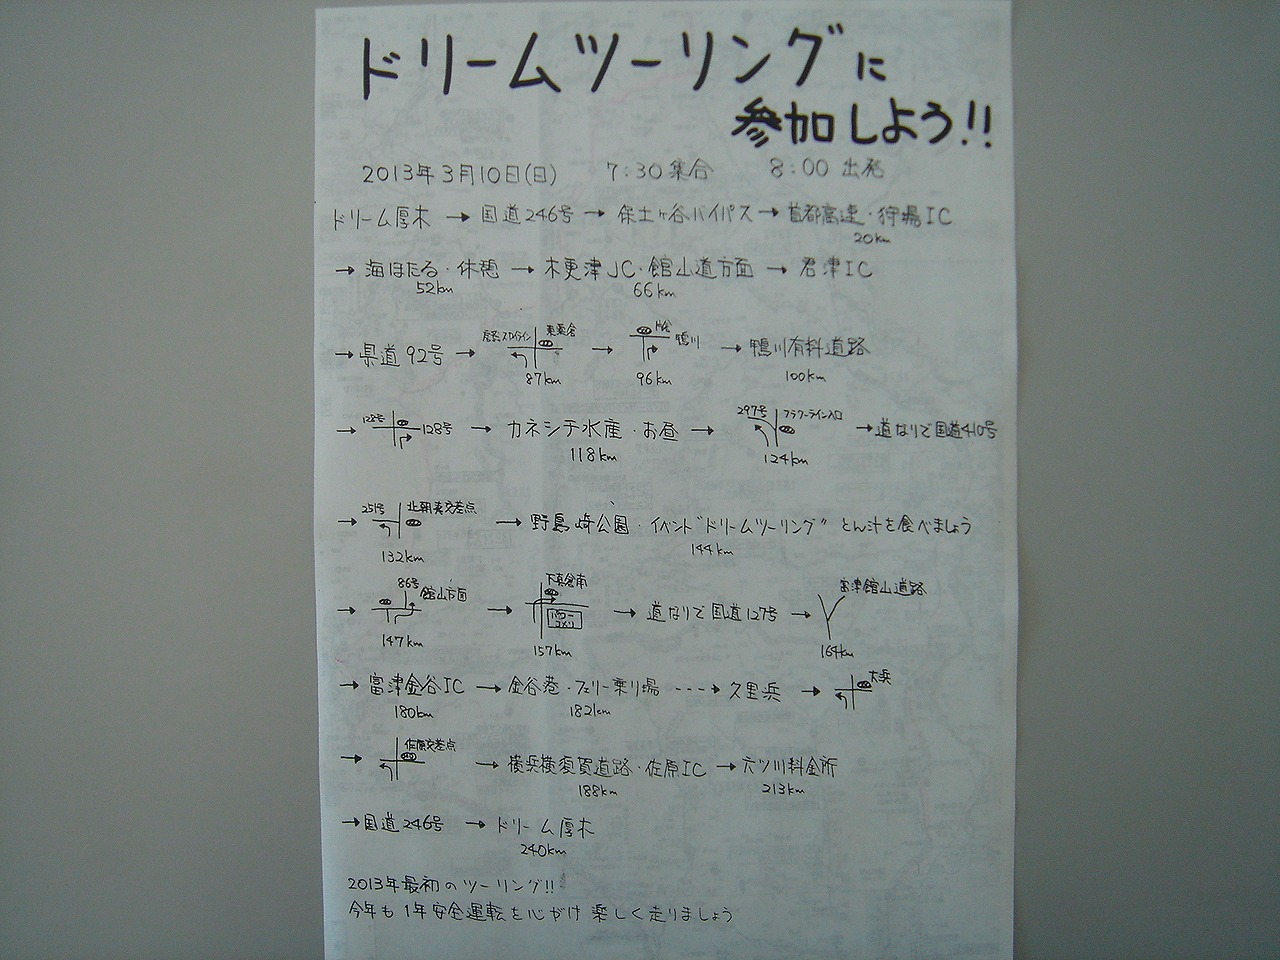 ドリームツーリングに
参加しよう!!
2013年3月10日(日) 7:30集合 8:00出発
ドリーム厚木 → 国道246号 → 保土ヶ谷バイパス → 首都高速・狩場IC
20km
→ 海ほたる・休憩 → 木更津JC・館山道方面 → 君津IC
52km 66km
房総スカイライン 東粟倉 鴨川
→ 県道92号 → → → 鴨川有料道路
87km 96km 100km
128号 297号 フラワーライン入口
→ 128号 → カネシチ水産・お昼 → → 道なりで国道410号
118km 124km
251号 北朝夷交差点
→ → 野島崎公園・イベント"ドリームツーリング" とん汁を食べましょう
132km 144km
86号 館山方面 下真倉南 富津館山道路
→ → パワーコメリ → 道なりで国道127号 →
147km 157km 164km
→ 富津金谷IC → 金谷港・フェリー乗り場 ---→ 久里浜 → 大浜
180km 182km
佐原交差点
→ → 横浜横須賀道路・佐原IC → 六ツ川料金所
188km 213km
→国道246号 → ドリーム厚木
240km
2013年最初のツーリング!!
今年も1年安全運転を心がけ 楽しく走りましょう